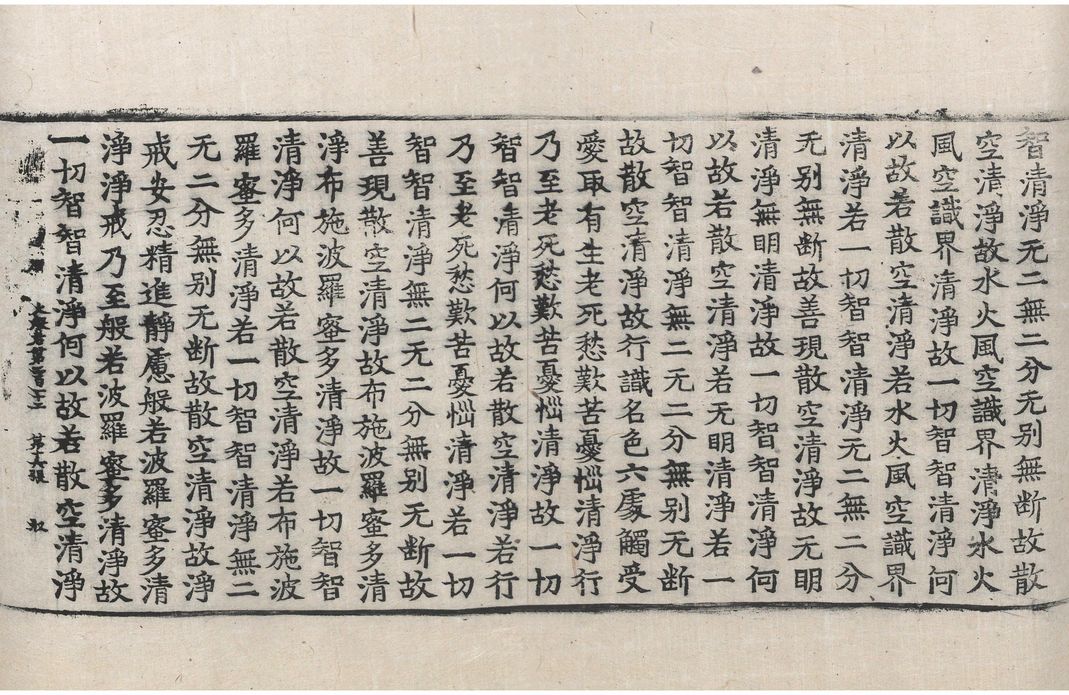 智清淨无二無二分无别無断故散
空清淨故水火風空識界清淨水火
風空識界清淨故一切智智清淨何
以故若散空清淨若水火風空識界
清淨若一切智智清淨无二無二分
无别無断故善現散空清淨故无明
清淨無明清淨故一切智智清淨何
以故若散空清淨若无明清淨若一
切智智清淨無二无二分無别无断
故散空清淨故行識名色六處觸受
愛取有生老死愁歎苦憂惱清淨行
乃至老死愁歎苦憂惱清淨故一切
智智清淨何以故若散空清淨若行
乃至老死愁歎苦憂惱清淨若一切
智智清淨無二无二分無别无断故
善現散空清淨故布施波羅蜜多清
淨布施波羅蜜多清淨故一切智智
清淨何以故若散空清淨若布施波
羅蜜多清淨若一切智智清淨無二
无二分無别无断故散空清淨故淨
戒安忍精進靜慮般若波羅蜜多清
淨淨戒乃至般若波羅蜜多清淨故
一切智智清淨何以故若散空清淨
大般若第二百三十二 第十六張